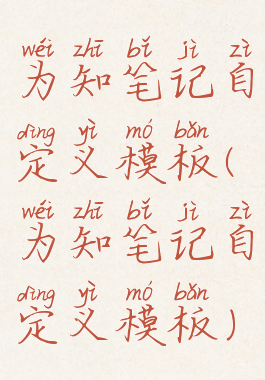 wéi zhī bǐ jì zì
为知笔记自
dìng yì mó bǎn
定义模板(
wéi zhī bǐ jì zì
为知笔记自
dìng yì mó bǎn
定义模板)